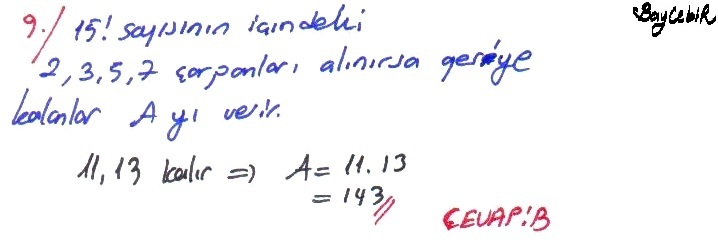 BayCebiR
9./ 15! sayısının içindeki
2, 3, 5, 7 çarpanları alınırsa geriye
kalanlar A yı verir.
11, 13 kalır => A = 11.13
= 143//
CEVAP:B